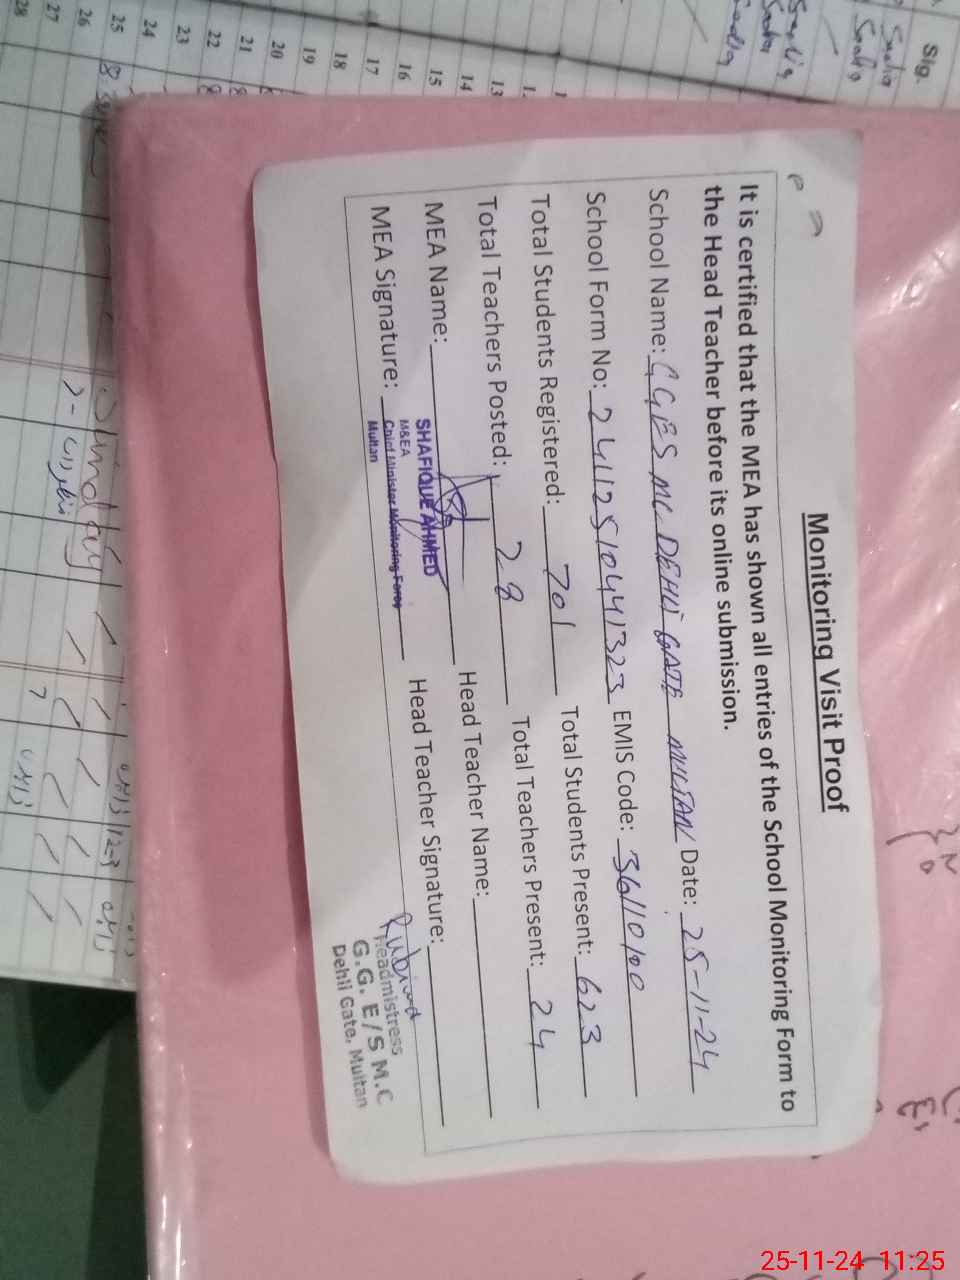 Monitoring Visit Proof
It is certified that the MEA has shown all entries of the School Monitoring Form to
the Head Teacher before its online submission.
School Name: GGES MC DEHLI GATE MULTAN Date: 25-11-24
School Form No: 241125104441323 EMIS Code: 36110100
Total Students Registered: 701 Total Students Present: 623
Total Teachers Posted: 28 Total Teachers Present: 24
MEA Name: Head Teacher Name:
MEA Signature: Head Teacher Signature:
SHAFIQUE AHMED
M&EA
Chief Minister Monitoring Force
Multan
Rubina
Headmistress
G.G. E/S M.C
Dehli Gate, Multan
Sig.
28
27
26
25
24
23
22
21
20
19
18
17
16
15
14
13
Sunday
25-11-24 11:25